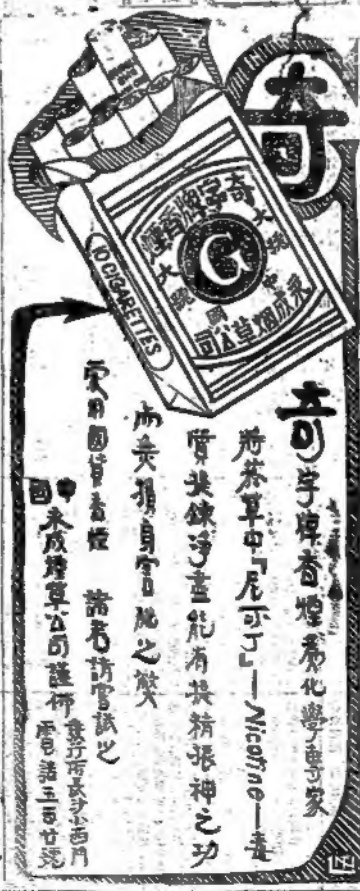 奇
奇字牌香煙
大號
G
大號
中國
永成烟草公司
10 CIGARETTES
奇字牌香煙 化學專家
將菸草中「尼可丁」—Nicotine—毒
質提鍊淨盡能有提精振神之功
而無損身害 之弊
愛用國貨香煙 諸君請嘗試之
中國永成煙草公司謹佈
發行所長沙小西門
電話 百廿號